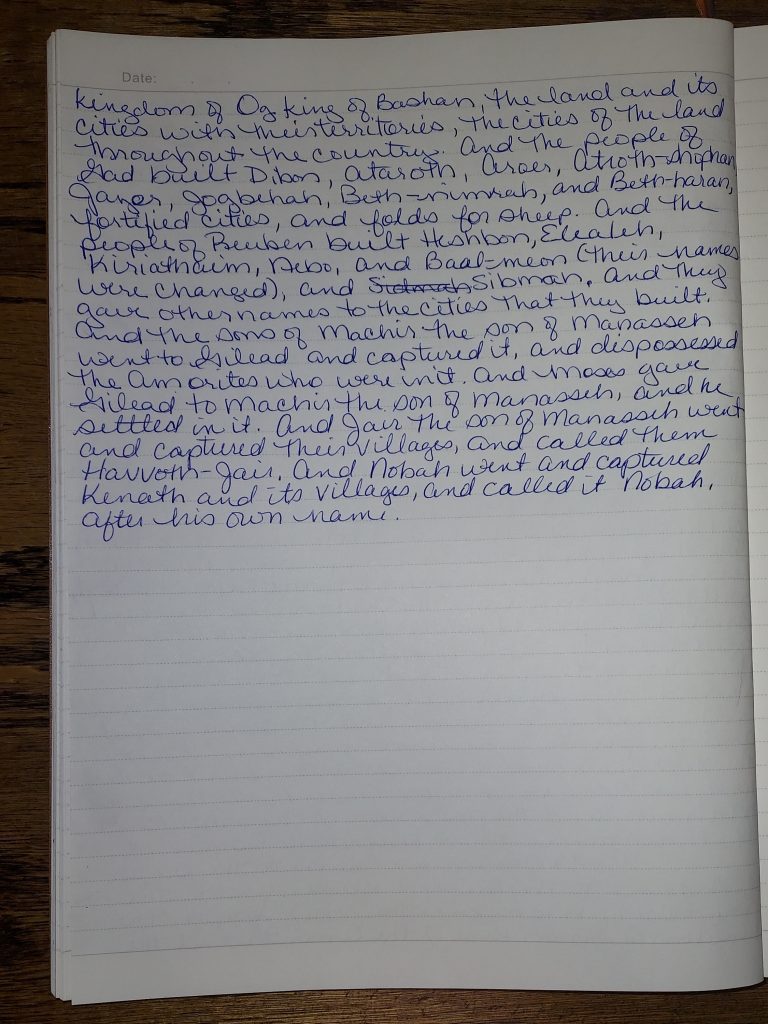 Date:
kingdom of Og king of Bashan, the land and its
cities with their territories, the cities of the land
throughout the country. And the people of
Gad built Dibon, Ataroth, Aroer, Atroth-shophan,
Jazer, Jogbehah, Beth-nimrah, and Beth-haran,
fortified cities, and folds for sheep. And the
people of Reuben built Heshbon, Elealeh,
Kiriathaim, Nebo, and Baal-meon (their names
were changed), and Sidmah Sibmah. And they
gave other names to the cities that they built.
And the sons of Machir the son of Manasseh
went to Gilead and captured it, and dispossessed
the Amorites who were in it. And Moses gave
Gilead to Machir the son of Manasseh, and he
settled in it. And Jair the son of Manasseh went
and captured their villages, and called them
Havvoth-Jair. And Nobah went and captured
Kenath and its villages, and called it Nobah,
after his own name.